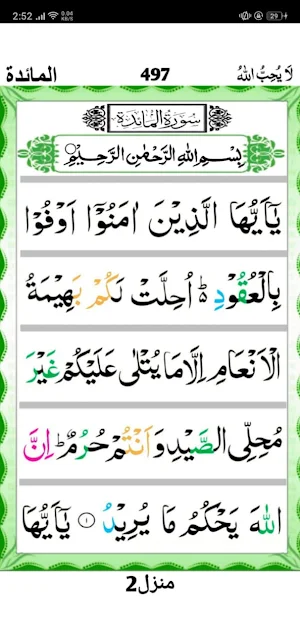 2:52 0.04 KB/S 29
المائدة 497 لَا يُحِبُّ اللهُ
سُورَةُ الْمَائِدَةِ
بِسْمِ اللهِ الرَّحْمٰنِ الرَّحِيْمِ
يٰۤاَيُّهَا الَّذِيْنَ اٰمَنُوْۤا اَوْفُوْا
بِالْعُقُوْدِ ؕ اُحِلَّتْ لَكُمْ بَهِيْمَةُ
الْاَنْعَامِ اِلَّا مَا يُتْلٰى عَلَيْكُمْ غَيْرَ
مُحِلِّى الصَّيْدِ وَاَنْتُمْ حُرُمٌ ؕ اِنَّ
اللهَ يَحْكُمُ مَا يُرِيْدُ ۝۱ يٰۤاَيُّهَا
منزل2